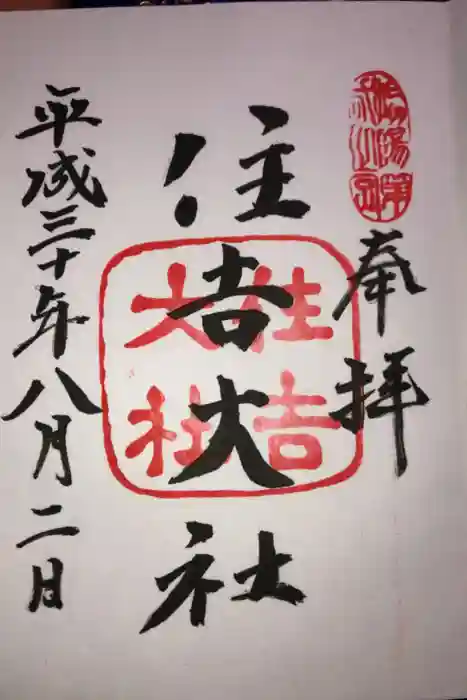 奉拝
住吉大社
住吉
大社
平成三十年八月二日